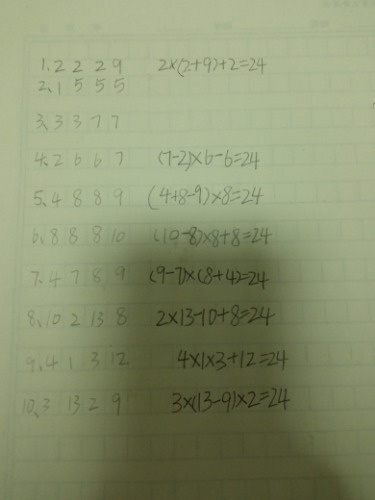 1、2 2 2 9 2×(2+9)+2=24
2、1 5 5 5
3、3 3 7 7
4、2 6 6 7 (7-2)×6-6=24
5、4 8 8 9 (4+8-9)×8=24
6、8 8 8 10 (10-8)×8+8=24
7、4 7 8 9 (9-7)×(8+4)=24
8、10 2 13 8 2×13-10+8=24
9、4 1 3 12 4×1×3+12=24
10、3 13 2 9 3×(13-9)×2=24